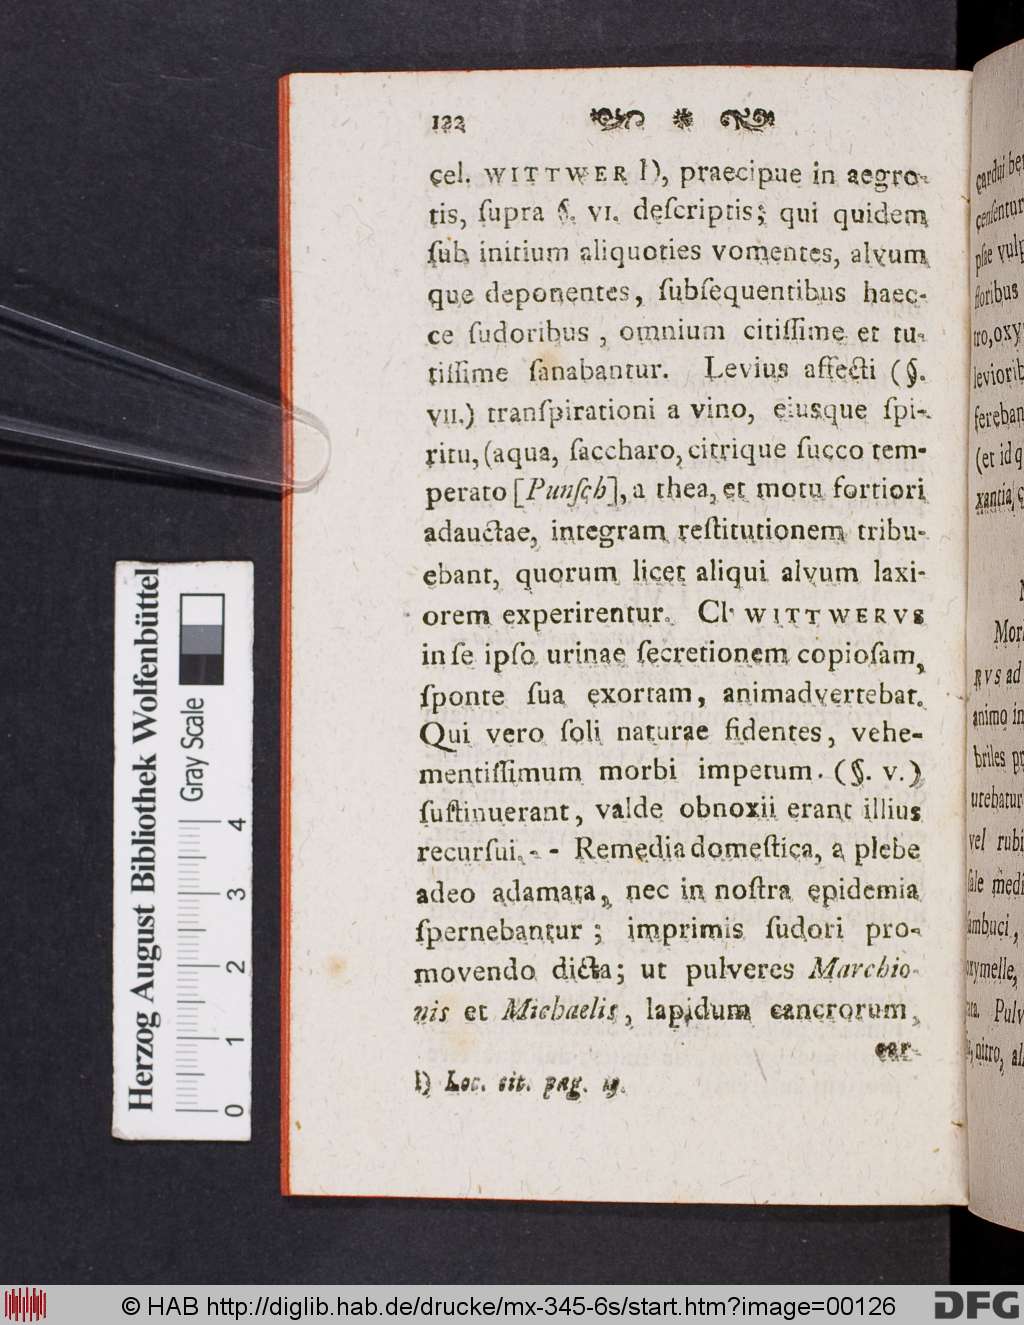 122
cel. WITTWER l), praecipue in aegro-
tis, ſupra §. VI. deſcriptis; qui quidem
ſub initium aliquoties vomentes, alvum
que deponentes, ſubſequentibus haec-
ce ſudoribus, omnium citiſſime et tu-
tiſſime ſanabantur. Levius affecti (§.
VII.) tranſpirationi a vino, eiusque ſpi-
ritu, (aqua, ſaccharo, citrique ſucco tem-
perato [Punſch], a thea, et motu fortiori
adauctae, integram reſtitutionem tribu-
ebant, quorum licet aliqui alvum laxi-
orem experirentur. Cl. WITTWERVS
in ſe ipſo urinae ſecretionem copioſam,
ſponte ſua exortam, animadvertebat.
Qui vero ſoli naturae fidentes, vehe-
mentiſſimum morbi impetum. (§. V.)
ſuſtinuerant, valde obnoxii erant illius
recurſui. - - Remedia domeſtica, a plebe
adeo adamata, nec in noſtra epidemia
ſpernebantur; imprimis ſudori pro-
movendo dicta; ut pulveres Marchio-
nis et Michaelis, lapidum cancrorum,
car-
l) Loc. cit. pag. 19.
cardui
ploribus
tro, oxy
leviorib
ferebant
(et id q
xantia,
Mor
RVS ad
animo in
briles
urebatur
vel rubi
ſale medi
ſambuci,
oxymelle,
Pulv
nitro,
Herzog August Bibliothek Wolfenbüttel
Gray Scale
0 1 2 3 4
© HAB http://diglib.hab.de/drucke/mx-345-6s/start.htm?image=00126
DFG